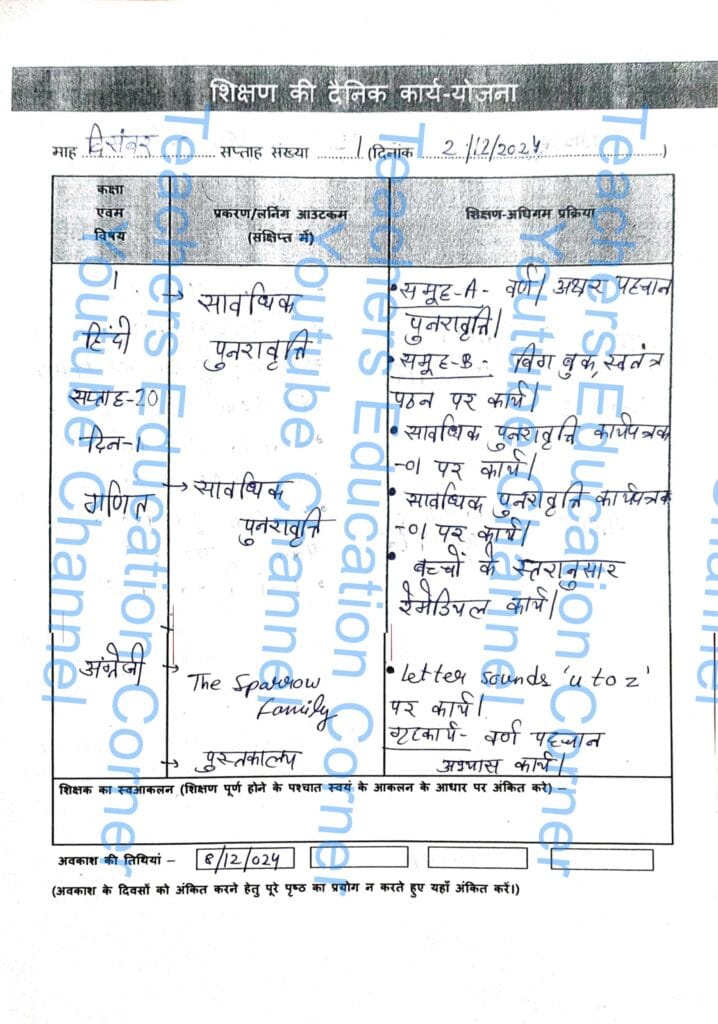 शिक्षण की दैनिक कार्य-योजना
माह दिसंबर सप्ताह संख्या 1 (दिनांक 2/12/2024)
कक्षा एवम विषय
प्रकरण/लर्निंग आउटकम (संक्षिप्त में)
शिक्षण-अधिगम प्रक्रिया
1
हिंदी
सप्ताह-20
दिन-1
→ सावधिक
पुनरावृत्ति
• समूह-A- वर्ण/अक्षर पहचान
पुनरावृत्ति।
• समूह-B- बिग बुक, स्वतंत्र
पठन पर कार्य।
• सावधिक पुनरावृत्ति कार्यपत्रक
-01 पर कार्य।
गणित
→ सावधिक
पुनरावृत्ति
• सावधिक पुनरावृत्ति कार्यपत्रक
-01 पर कार्य।
• बच्चों के स्तरानुसार
रेमेडियल कार्य।
अंग्रेजी
→ The Sparrow
Family
→ पुस्तकालय
• Letter sounds 'u to z'
पर कार्य।
गृहकार्य- वर्ण पहचान
अभ्यास कार्य।
शिक्षक का स्वआकलन (शिक्षण पूर्ण होने के पश्चात स्वयं के आकलन के आधार पर अंकित करे) –
अवकाश की तिथियां – 8/12/024
(अवकाश के दिवसों को अंकित करने हेतु पूरे पृष्ठ का प्रयोग न करते हुए यहाँ अंकित करें।)
Teachers Education Corner
Youtube Channel
Teachers Education Corner
Youtube Channel